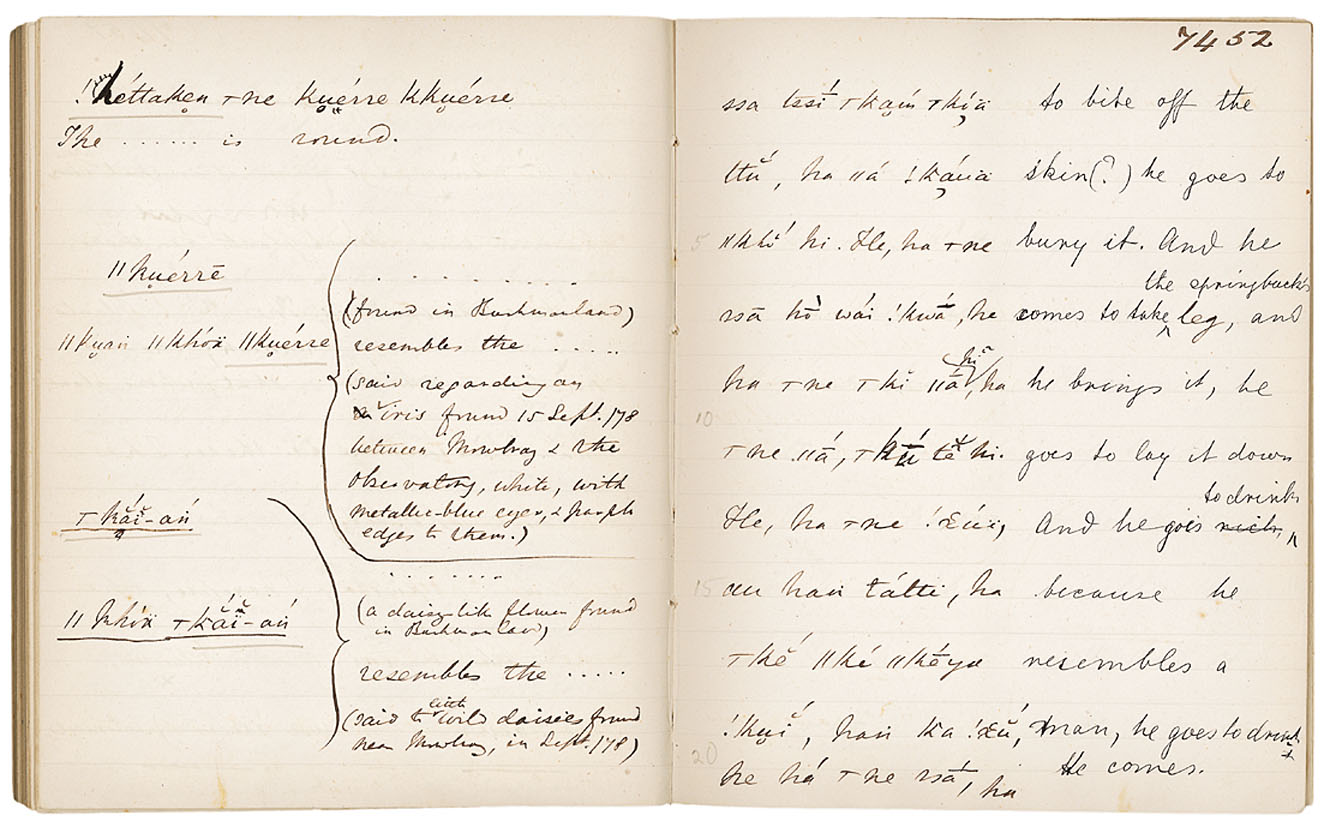 !héttaken ⊤ne kuérre kkuérre
The ...... is round.
ǁkuérrē
. . . . . . . . .
(found in Bushmanland)
ǁkuan ǁkhóä ǁkuérre
resembles the .....
(said regarding an
iris found 15 Sept. '78
between Mowbray & the
observatory, white, with
metallic-blue eyes, & purple
edges to them.)
⊤kắĭ-ań
. . . . . . .
(a daisy-like flower found
in Bushmanland)
ǁkhóä ⊤kắĭ-ań
resembles the .....
(said to little wild daisies found
near Mowbray, in Sept. '78)
7452
ssa tssī́ ⊤kaín ⊤kíä to bite off the
ttŭ́, ha ǁá !káua skin(?) he goes to
5 hi. He, ha ⊤ne bury it. And he
the springbuck's
ssā hŏ̀ wái !kwā́, he comes to take leg, and
hi
ha ⊤ne ⊤kĭ ǁā́, ha he brings it, he
10
⊤ne ǁā́, tĕ́ hi. goes to lay it down
to drink
He, ha ⊤ne And he goes
15 au han tátti, ha because he
⊤kĕ́ ǁké ǁkéya resembles a
!kuĭ́, han ka man, he goes to drink
20
he há ⊤ne ssā́, ha He comes.